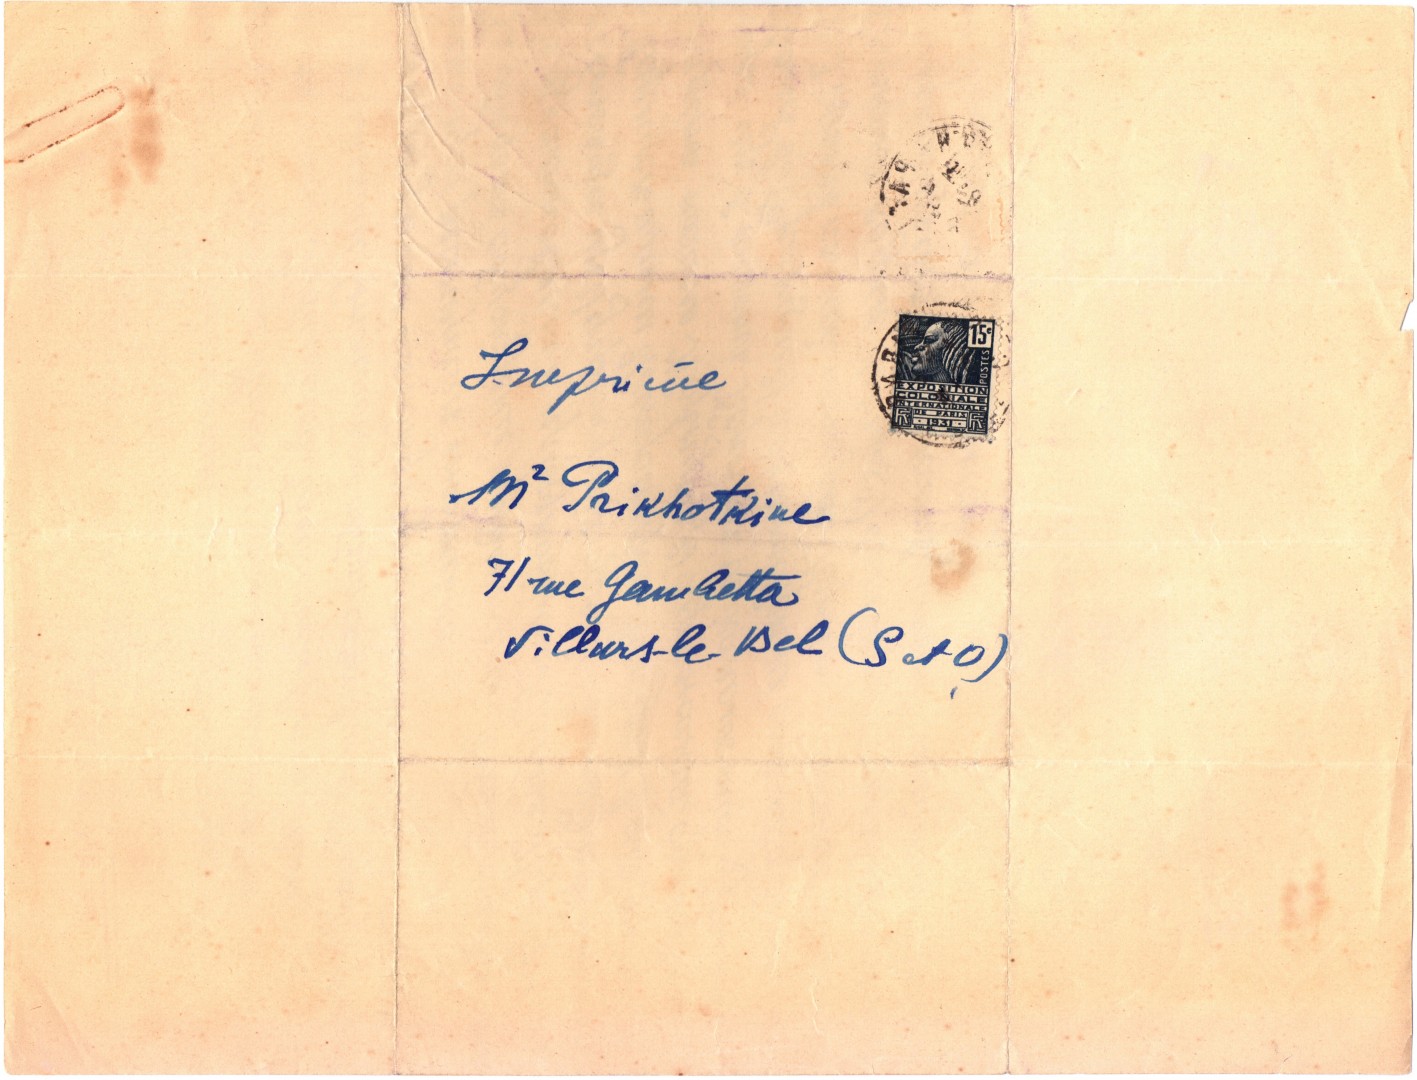 15c
POSTES
EXPOSITION
COLONIALE
INTERNATIONALE
DE PARIS
RF · 1931 · RF
Imprimé
Mr Prikhotkine
71 rue Gambetta
Villiers-le-Bel (S et O)